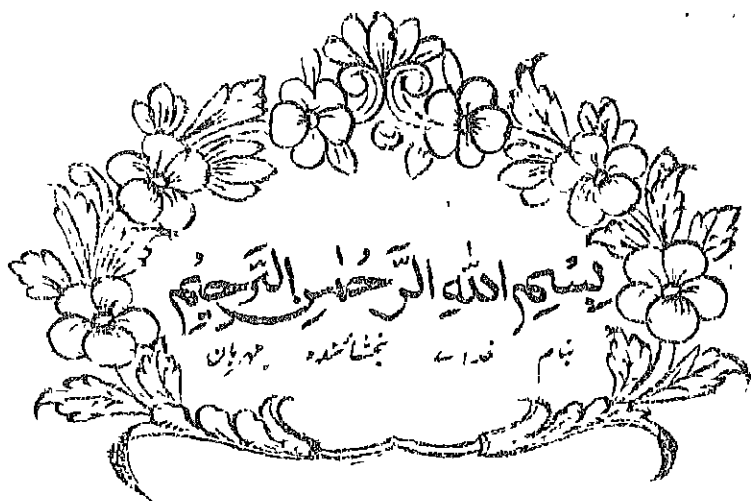 بِسْمِ اللهِ الرَّحْمٰنِ الرَّحِيْمِ
بنام خداے بخشائنده مهربان